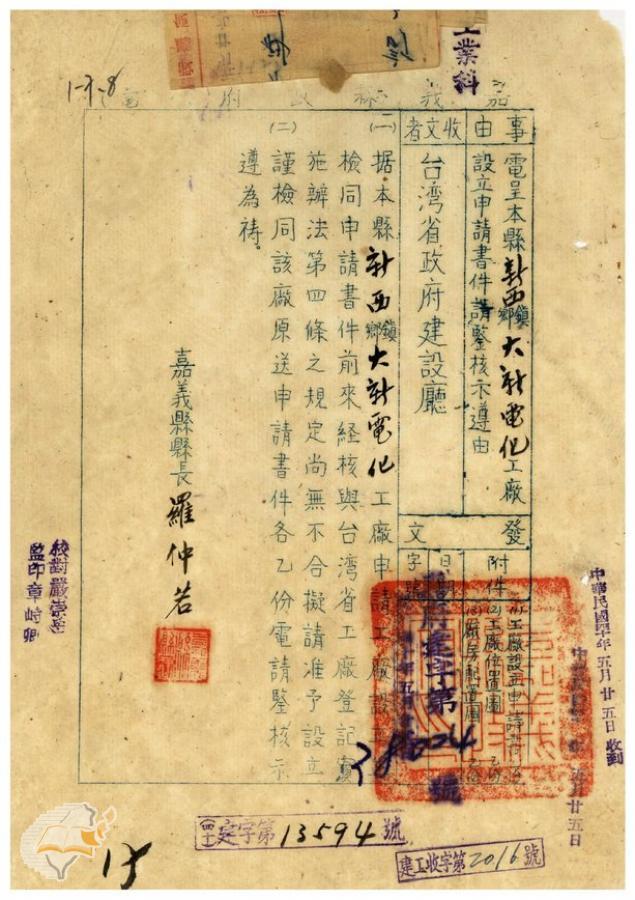 工業科
1-3-8
嘉義縣政府電
事由
電呈本縣新西鄉鎮大新電化工廠
設立申請書件請鑒核示遵由
收文者
台湾省政府建設廳
發文
附件
(1)工廠設立申請書乙份
(2)工廠位置圖乙份
(3)廠房配置圖乙份
日期
字號
府建字第
號
(一)据本縣新西鄉鎮大新電化工廠申請工廠設立
檢同申請書件前來経核與台湾省工廠登記實
施辦法第四條之規定尚無不合擬請准予設立
(二)謹檢同該廠原送申請書件各乙份電請鑒核示
遵為祷。
嘉義縣縣長羅仲若
校對嚴崇岳
監印章峙卿
中華民國40年五月廿五日收到
五月廿五日
建字第13594號
建工收字第2016號